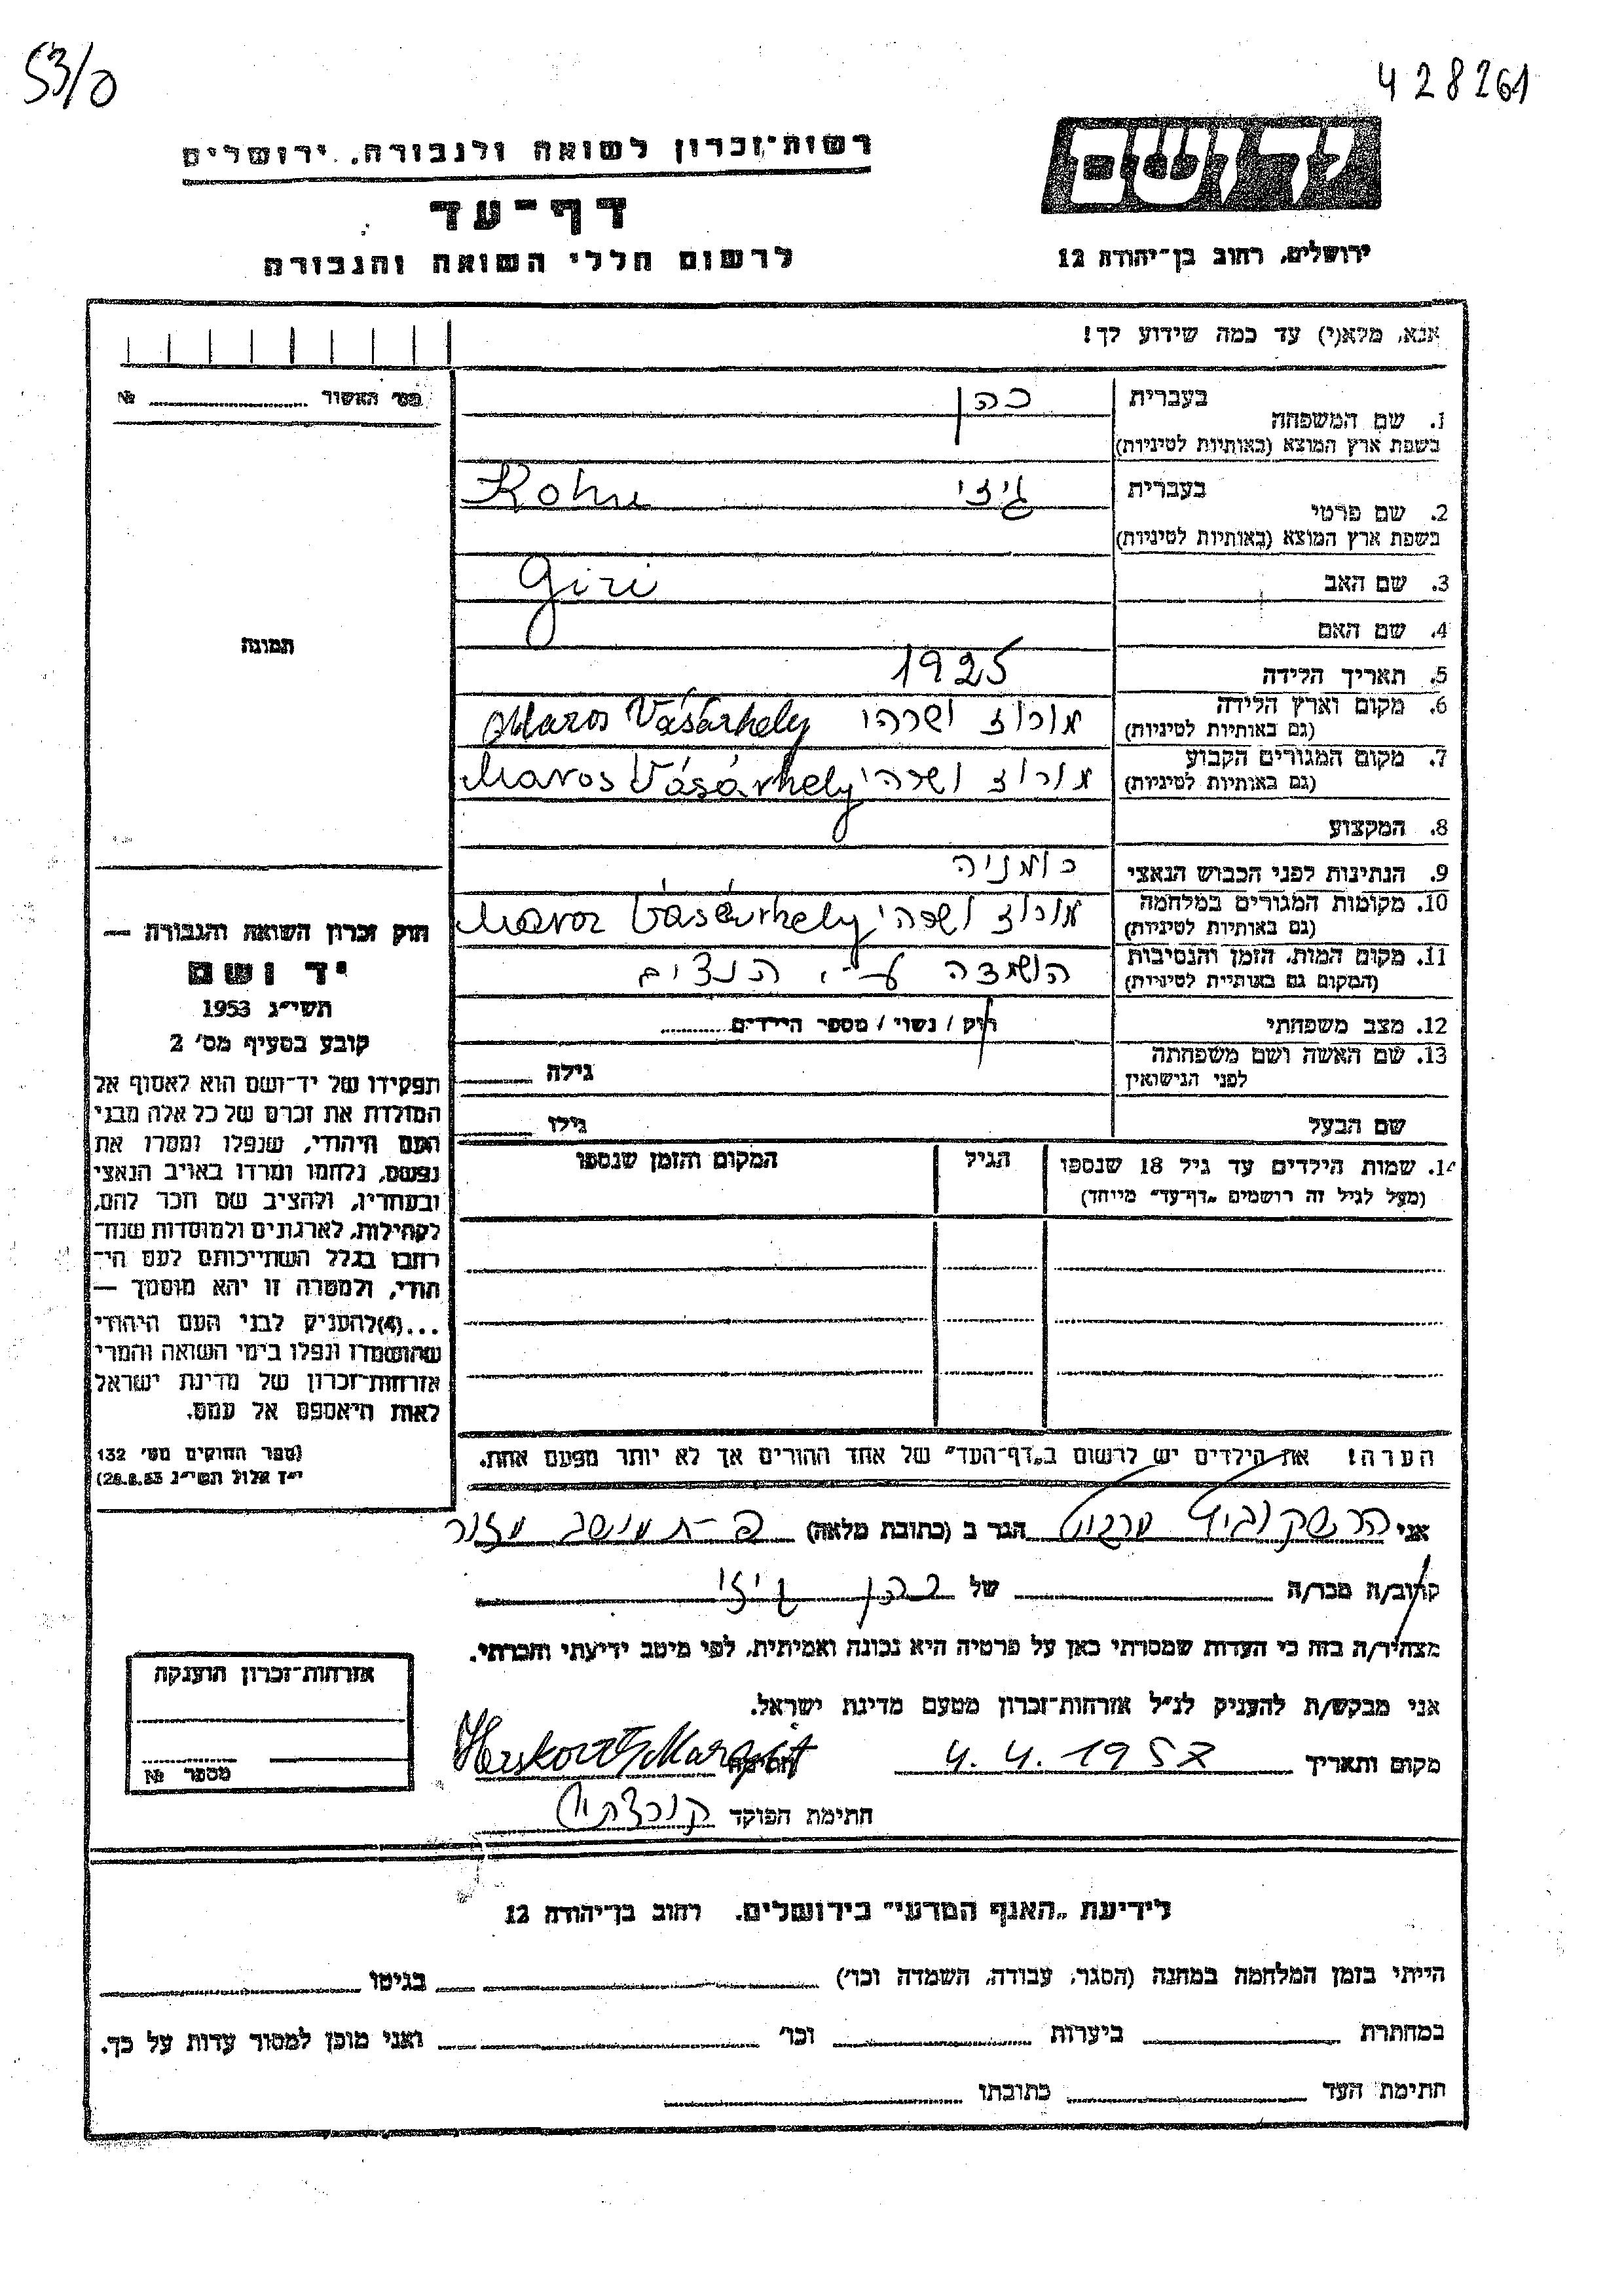 53/0
428261
רשות־זכרון לשואה ולגבורה, ירושלים
דף־עד
לרשום חללי השואה והגבורה
יד ושם
ירושלים, רחוב בן־יהודה 12
אנא, מלא(י) עד כמה שידוע לך!
מס׳ האשור № 
1. שם המשפחה בעברית כהן
בשפת ארץ המוצא (באותיות לטיניות)
Kohn
2. שם פרטי בעברית גיזי
בשפת ארץ המוצא (באותיות לטיניות)
Gizi
3. שם האב
4. שם האם
5. תאריך הלידה 1925
6. מקום וארץ הלידה
(גם באותיות לטיניות) מורוז ושרהי Maros Vásárhely
7. מקום המגורים הקבוע
(גם באותיות לטיניות) מורוז ושרהי Maros Vásárhely
8. המקצוע
9. הנתינות לפני הכבוש הנאצי רומניה
10. מקומות המגורים במלחמה
(גם באותיות לטיניות) מורוז ושרהי Maros Vásárhely
11. מקום המות, הזמן והנסיבות
(המקום גם באותיית לטיניות) הושמדה ע״י הנצים
12. מצב משפחתי רוק / נשוי / מספר הילדים
13. שם האשה ושם משפחתה
לפני הנישואין גילה
שם הבעל גילו
14. שמות הילדים עד גיל 18 שנספו
(מעל לגיל זה רושמים „דף־עד״ מייחד)
הגיל
המקום והזמן שנספו
תמונה
חוק זכרון השואה והגבורה —
יד ושם
תשי״ג 1953
קובע בסעיף מס׳ 2
תפקידו של יד־ושם הוא לאסוף אל
המולדת את זכרם של כל אלה מבני
העם היהודי, שנפלו ומסרו את
נפשם, נלחמו ומרדו באויב הנאצי
ובעוזריו, ולהציב שם וזכר להם,
לקהילות, לארגונים ולמוסדות שנח־
רחבו בגלל השתייכותם לעם הי־
הודי, ולמטרה זו יהא מוסמך —
...(4)להעניק לבני העם היהודי
שהושמדו ונפלו בימי השואה והמרי
אזרחות־זכרון של מדינת ישראל
לאות היאספם אל עמם.
(ספר החוקים מס׳ 132
י״ז אלול תשי״ג 28.8.53)
הערה! את הילדים יש לרשום ב„דף־העד״ של אחד ההורים אך לא יותר מפעם אחת.
אני הרשקוביץ מרגיט הגר ב (כתובת מלאה) מושב מזור
קרוב/ה מכר/ה של כהן גיזי
מצהיר/ה בזה כי העדות שמסרתי כאן על פרטיה היא נכונה ואמיתית, לפי מיטב ידיעתי והכרתי.
אני מבקש/ת להעניק לנ״ל אזרחות־זכרון מטעם מדינת ישראל.
מקום ותאריך 4.4.1957 חתימה Herskovits Margit
חתימת הפוקד
אזרחות־זכרון הוענקה
מספר №
לידיעת „האגף המדעי״ בירושלים. רחוב בן־יהודה 12
הייתי בזמן המלחמה במחנה (הסגר, עבודה, השמדה וכו׳) בגיטו
במחתרת ביערות וכו׳ ואני מוכן למסור עדות על כך.
חתימת העד כתובתו